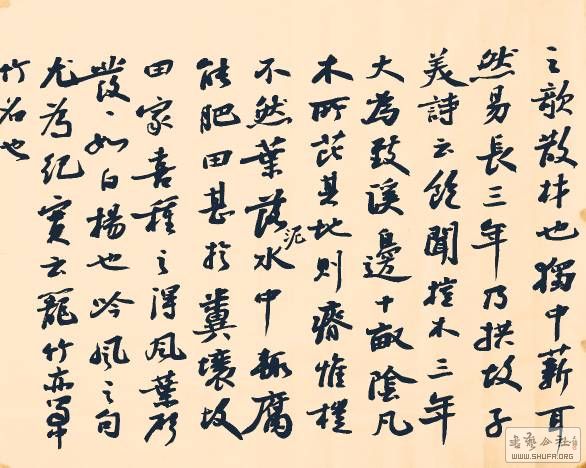 之欹散材也獨中薪耳
然易長三年乃拱故子
美詩云飽聞榿木三年
大為致溪邊十畝陰凡
木所芘其地則瘠惟榿
不然葉落泥水中輒腐
能肥田甚於糞壤故
田家喜種之得風葉聲
發〻如白楊也吟風之句
尤為紀實云籠竹亦蜀中
竹名也
WWW.SHUFA.ORG